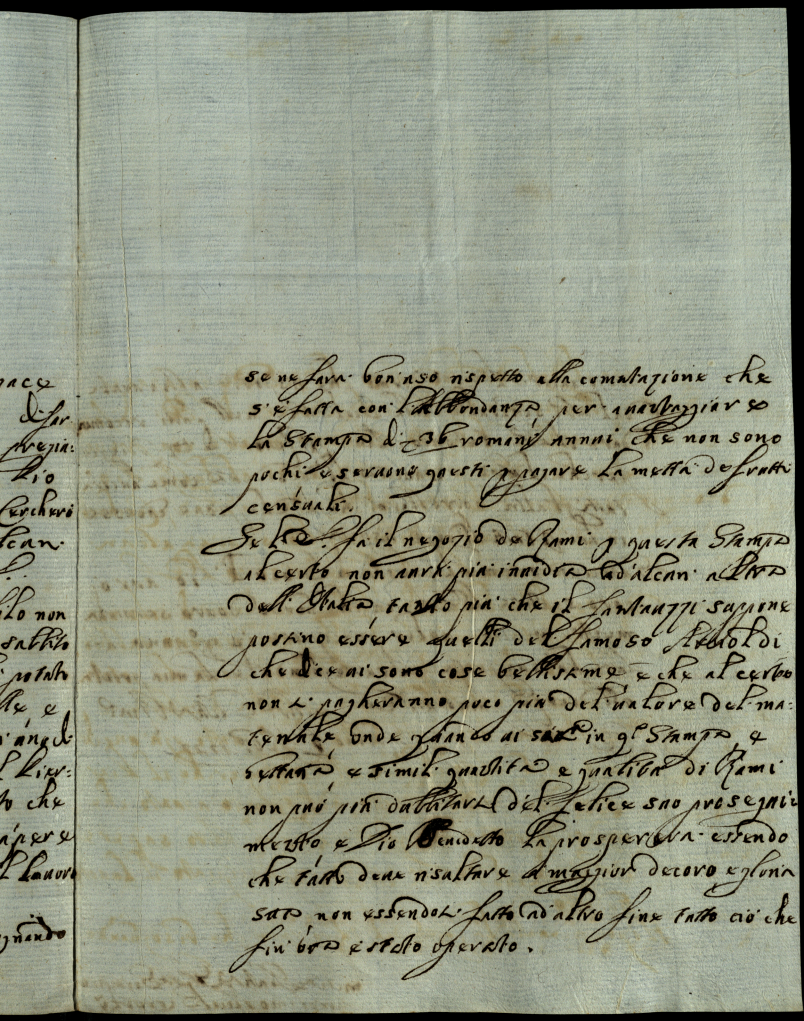 pace
di far
pregiu:
Dio
Cercherò
alcun

llo non
subbito
potuto
e

l Pier:
to che
sapere
l lavoro
gnando
se ne farà bon uso rispetto alla comutazione che
s'è fatta con l'Abbondanza per avantaggiare
la Stampa di 36 romani annui che non sono
pochi e servono questi p pagare la metta de frutti
censuali.
Se fa il negozio de Rami p questa Stampa
al certo non avrà più invidia ad alcun altra
dell'Italia tanto più che il Fantauzzi suppone
possino essere quelli del famoso
che dice vi sono cose bellissime e che al certo
non si pagheranno poco più del valore del ma:
teriale onde quando vi in qta Stampa e
e simil quantità e qualità di Rami
non può più dubbitarsi del felice suo prosegui
mento e Dio Benedetto la prospererà essendo
che tutto deve risultare a maggior decoro e gloria
sua non essendosi fatto ad altro fine tutto ciò che
fin ora è stato operato.